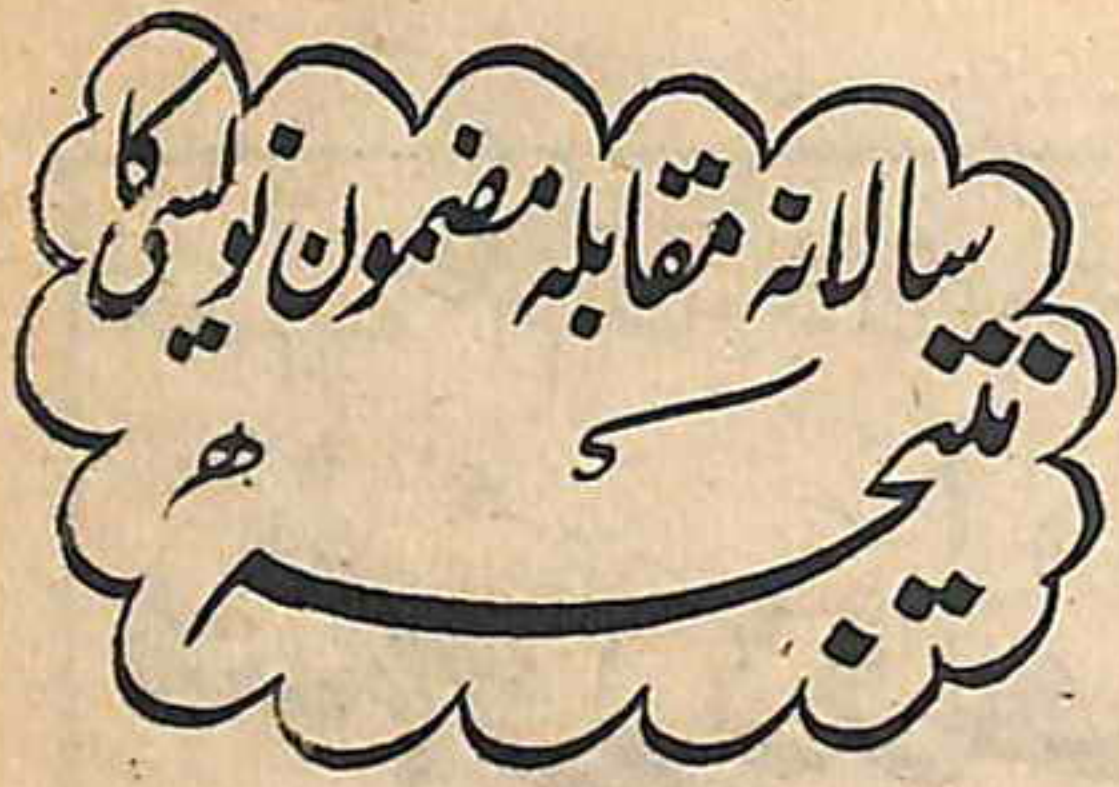 سالانہ مقابلہ مضمون نویسی کا
نتیجہ